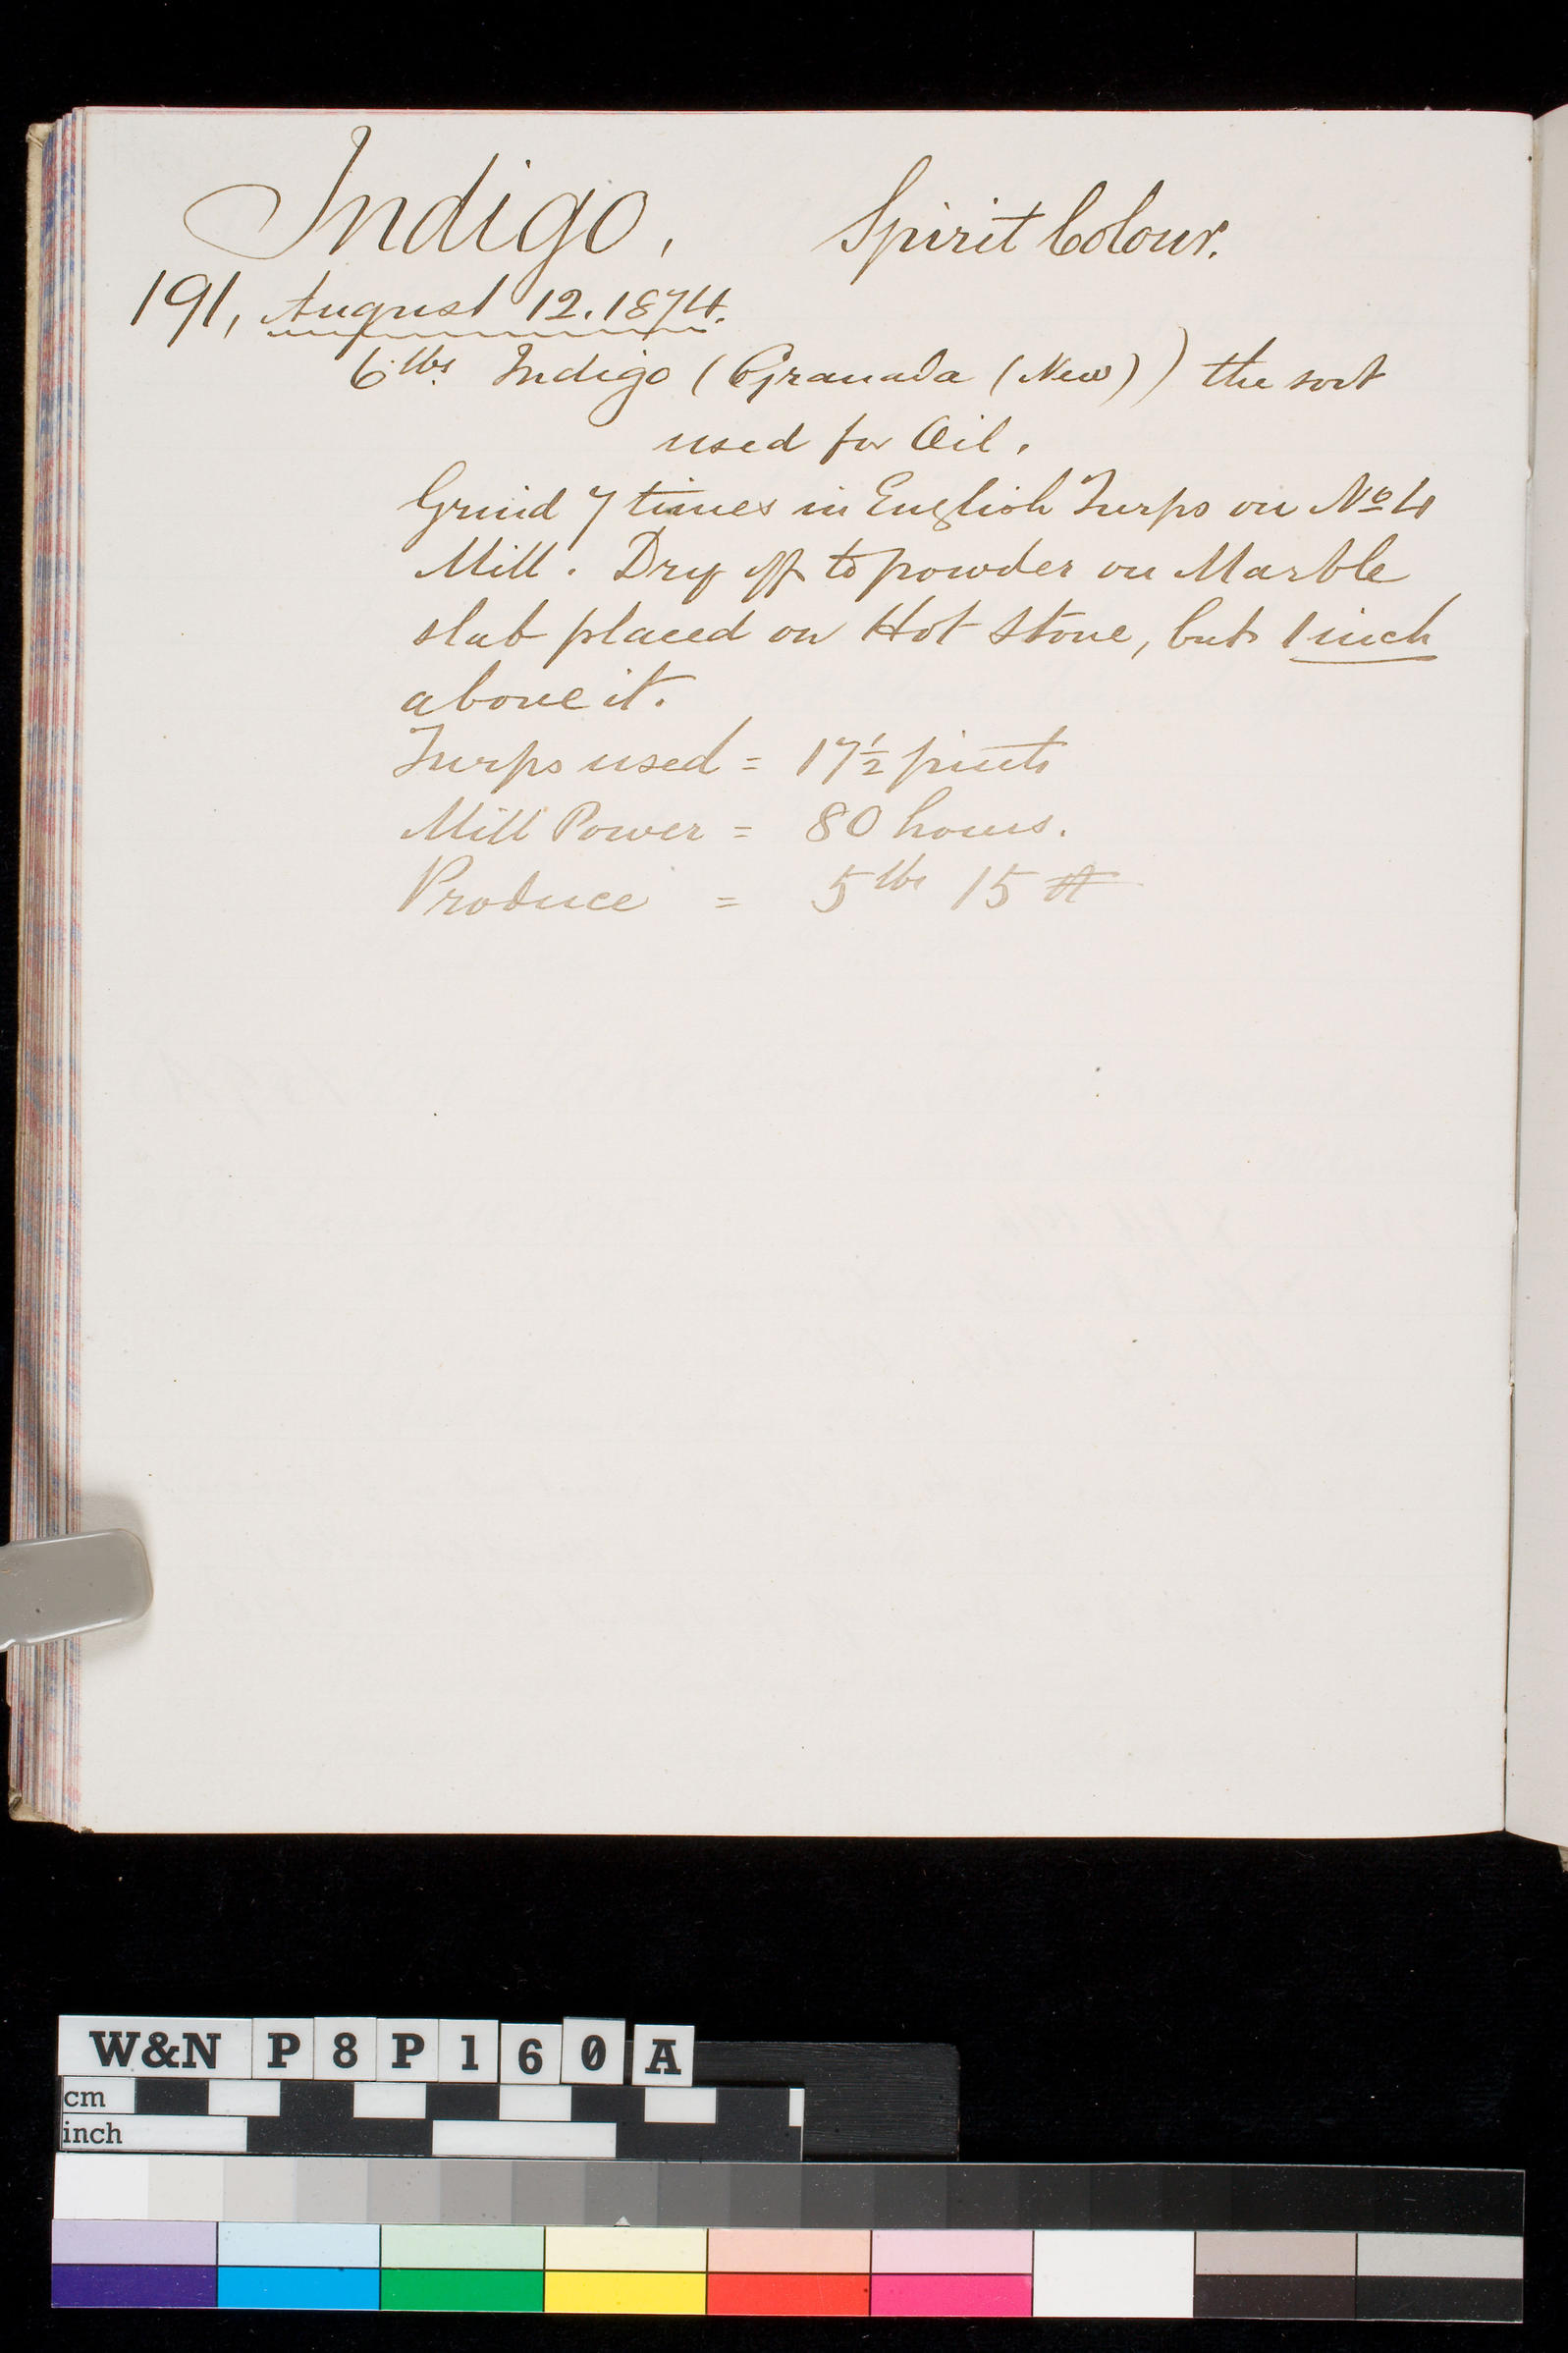 Indigo. Spirit Colour.
191, August 12. 1874.
6 lbs Indigo (Granada (New)) the sort
used for Oil.
Grind 7 times in English Turps on No 4
Mill. Dry off to powder on Marble
slab placed on Hot Stone, but 1 inch
above it.
Turps used = 17½ pints
Mill Power = 80 hours.
Produce = 5 lbs 15
W&N P8P160A
cm
inch